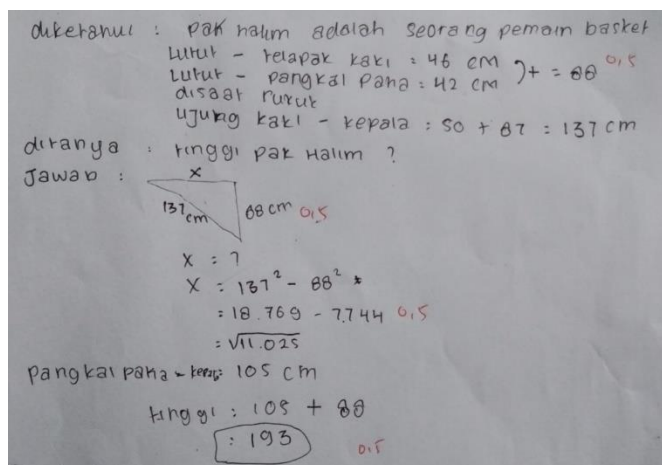 diketahui : pak halim adalah seorang pemain basket
Lutut - telapak kaki : 46 cm
Lutut - pangkal paha : 42 cm )+ = 88 0,5
disaat rukuk
ujung kaki - kepala : 50 + 87 = 137 cm
ditanya : tinggi pak Halim ?
Jawab :
x
137 cm
88 cm 0,5
x = ?
x = 137² - 88²
= 18.769 - 7.744 0,5
= √11.025
pangkal paha - kepala: 105 cm
tinggi : 105 + 88
: 193
0,5